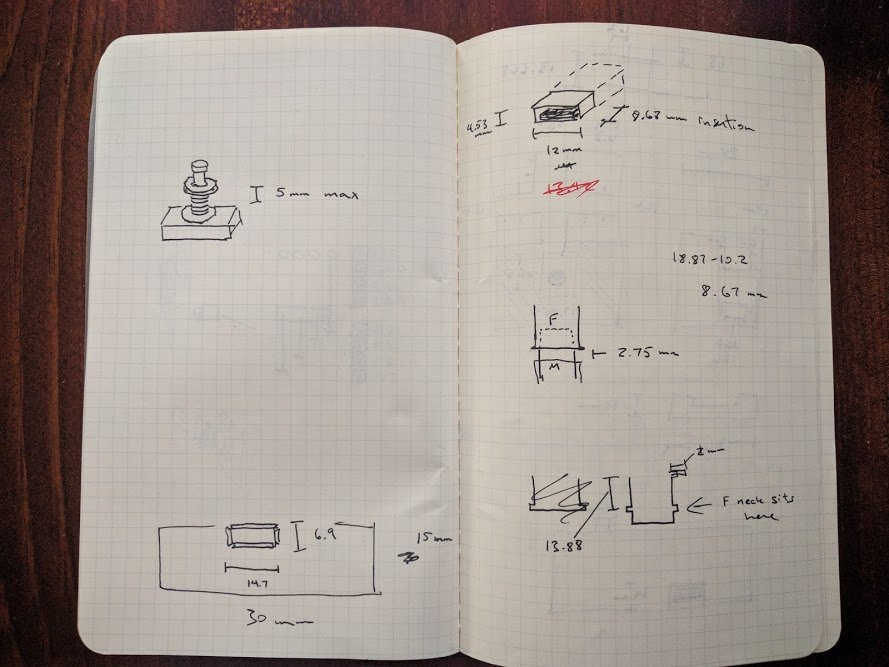 5 mm max
6.9
14.7
15mm
30 mm
4.53
mm
8.63 mm insertion
12mm
18.87-10.2
8.67 mm
F
2.75 mm
M
2 mm
F neck sits
here
13.88